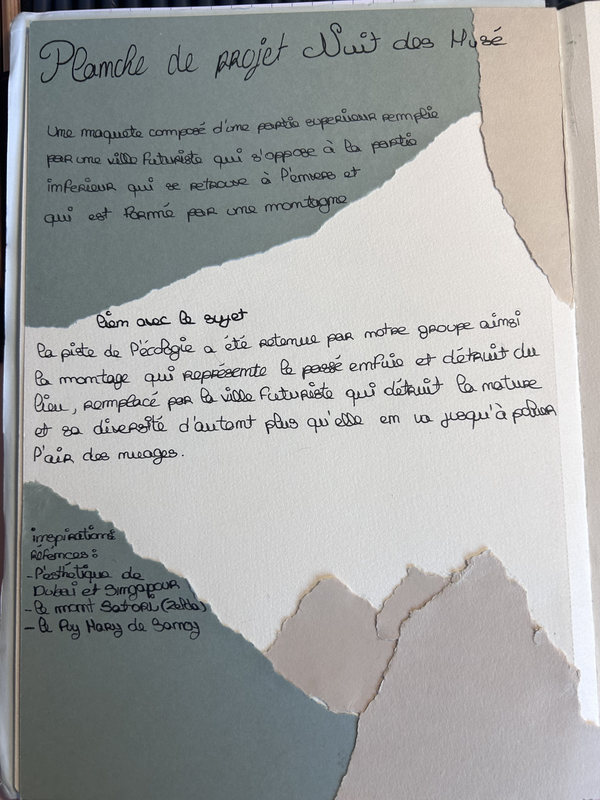 Planche de projet Nuit des Musé
Une maquete composé d'une partie superieur remplie
par une ville futuriste qui s'oppose à la partie
inferieur qui se retrouve à l'envers et
qui est formé par une montagne
lien avec le sujet
la piste de l'écologie a été retenue par notre groupe ainsi
la montage qui représente le passé enfuie et détruit du
lieu, remplacé par la ville futuriste qui détruit la nature
et sa diversité d'autant plus qu'elle en va jusqu'à poluer
l'air des nuages.
inspirations
référnces :
- l'esthétique de
Dubaï et Singapour
- le mont Satoru (Zelda)
- le Puy Mary de Sarnoy